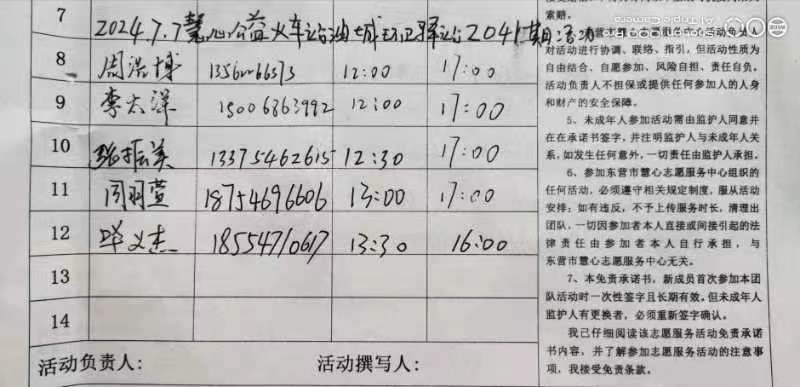 7
2024.7.7慧心公益火车站油城环卫驿站2041期活动
8 周浩博 13560066573 12:00 17:00
9 李太洋 15006863992 12:00 17:00
10 张振美 13375462615 12:30 17:00
11 闫羽萱 18754696606 13:00 17:00
12 毕义杰 18554710617 13:30 16:00
13
14
活动负责人: 活动撰写人:
索赔。
对活动进行协调、联络、指引,但活动性质为
自由结合、自愿参加、风险自担、责任自负。
活动负责人不担保或提供任何参加人的人身
和财产的安全保障。
5、未成年人参加活动需由监护人同意并
在在承诺书签字,并注明监护人与未成年人关
系,如发生任何意外,一切责任由监护人承担。
6、参加东营市慧心志愿服务中心组织的
任何活动,必须遵守相关规定制度,服从活动
安排;如有违反,不予上传服务时长,清理出
团队,一切因参加者本人直接或间接引起的法
律责任由参加者本人自行承担,与
东营市慧心志愿服务中心无关。
7、本免责承诺书,新成员首次参加本团
队活动时一次性签字且长期有效,但未成年人
监护人有更换者,必须重新签字确认。
我已仔细阅读该志愿服务活动免责承诺
书内容,并了解参加志愿服务活动的注意事
项,我接受免责条款。